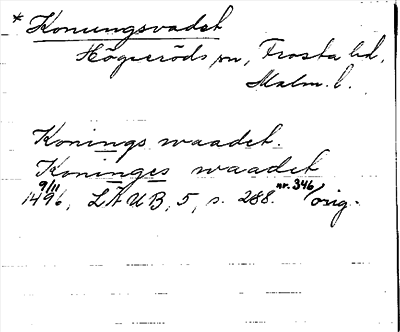 * Konungsvadet
Högseröds sn, Frosta hd,
Malm. l.
Konings waadet.
Koninges waadet
9/11 1496, LÄUB, 5, s. 288. nr. 346/orig.